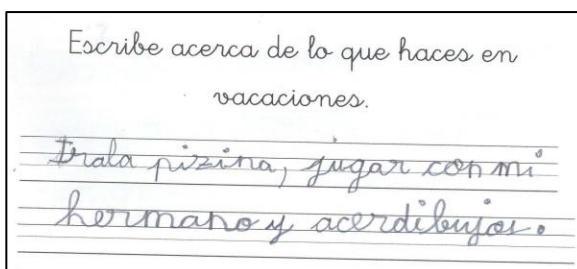 Escribe acerca de lo que haces en
vacaciones.
Irala pizina, jugar con mi
hermano y acerdibujos.